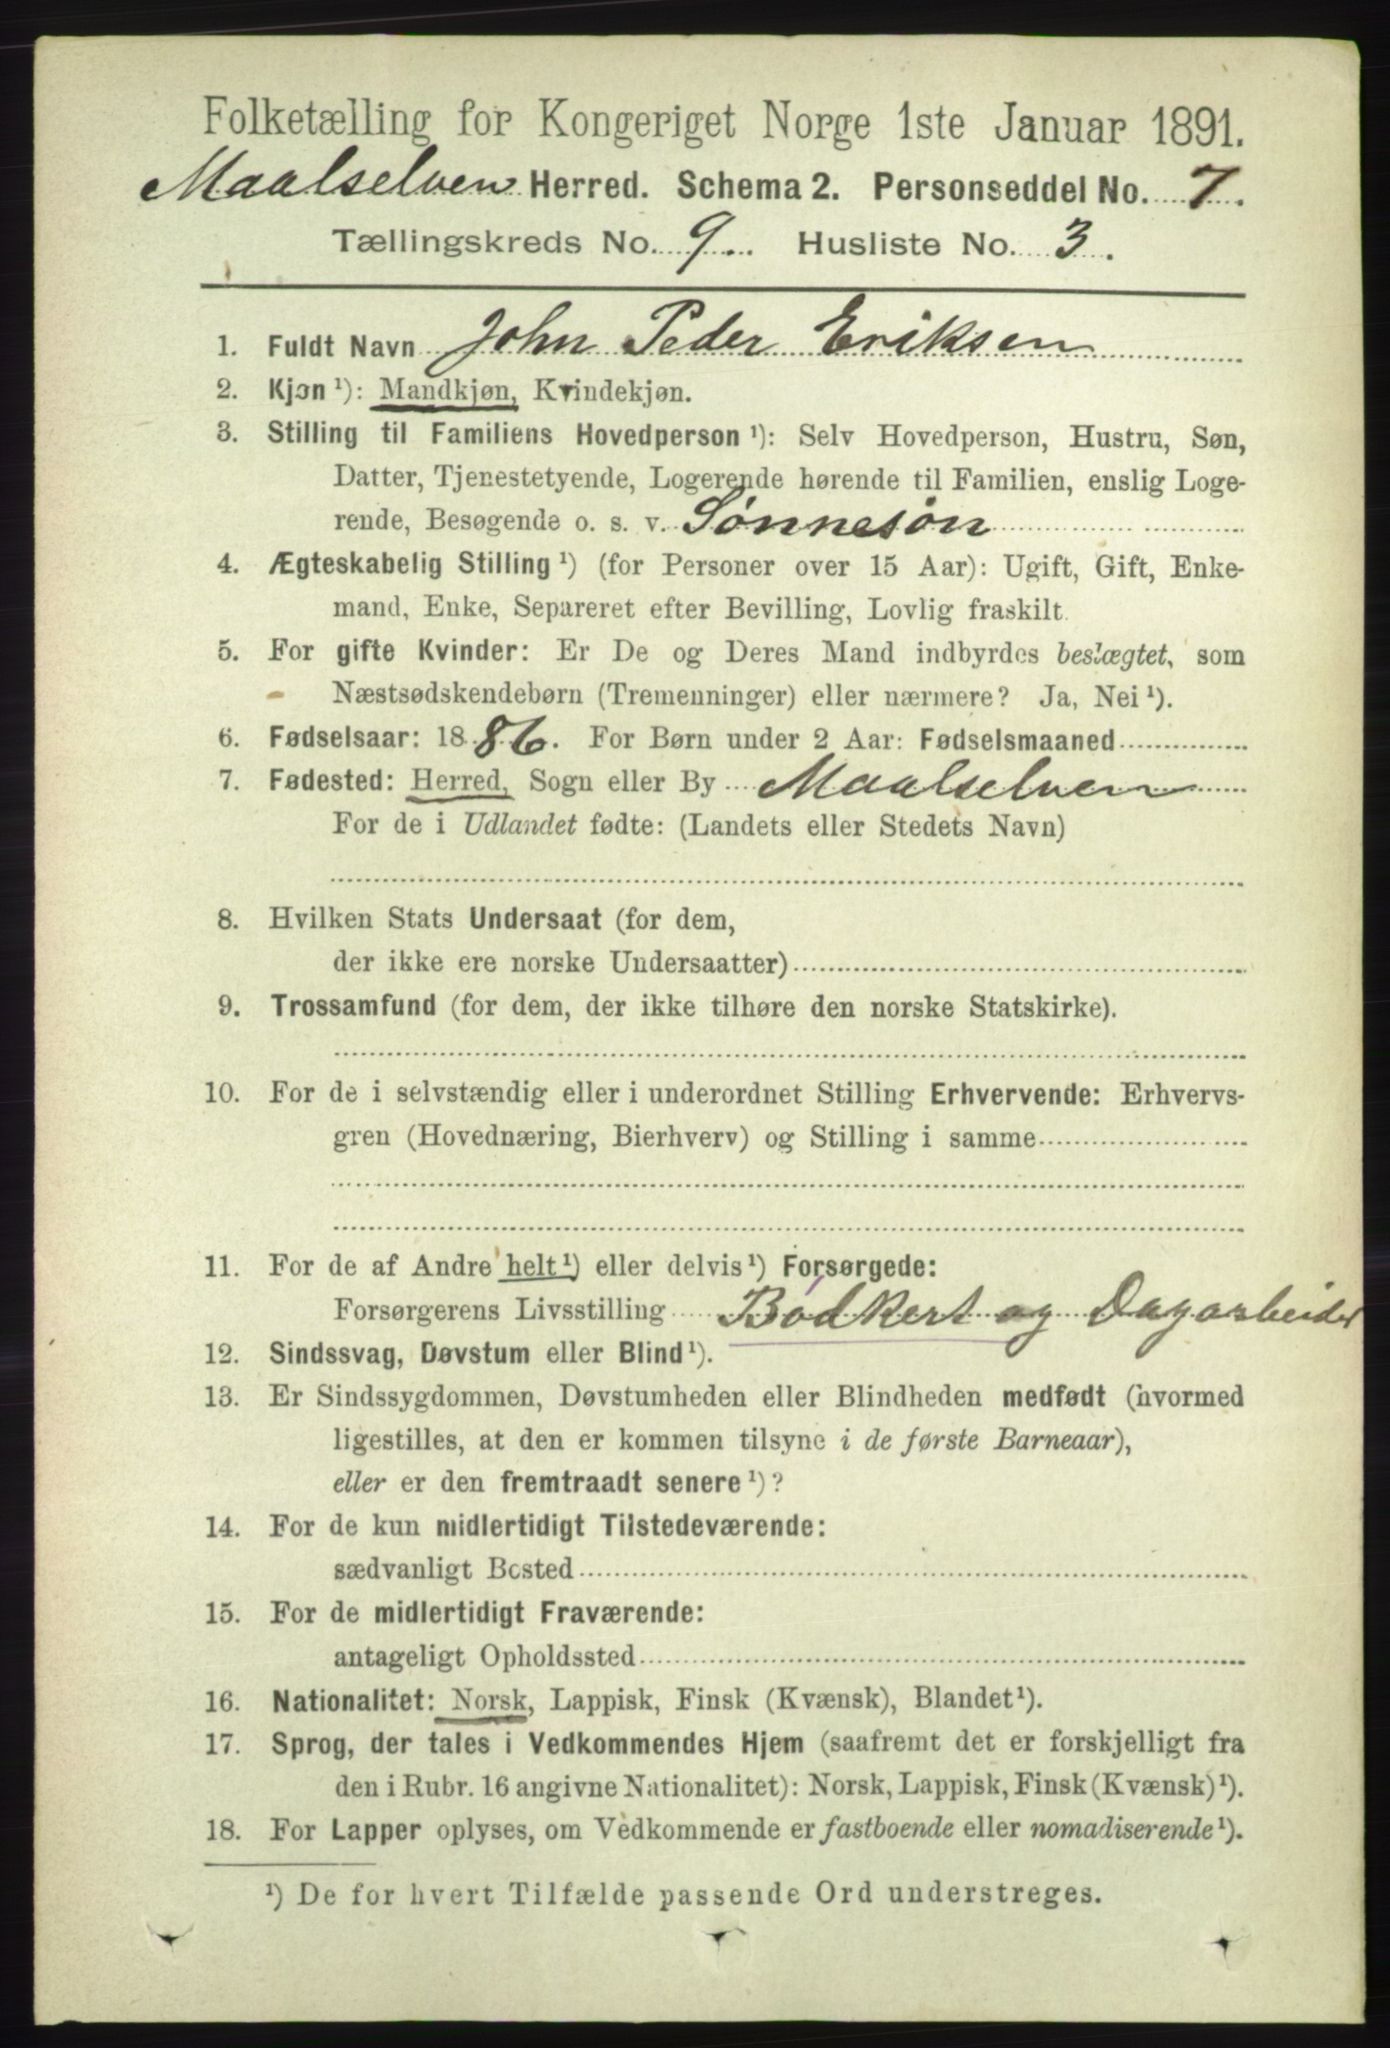 Folketælling for Kongeriget Norge 1ste Januar 1891.
Maalselven Herred. Schema 2. Personseddel No. 7.
Tællingskreds No. 9. Husliste No. 3.
1. Fuldt Navn John Peder Eriksen
2. Kjøn ¹): Mandkjøn, Kvindekjøn.
3. Stilling til Familiens Hovedperson ¹): Selv Hovedperson, Hustru, Søn,
Datter, Tjenestetyende, Logerende hørende til Familien, enslig Loge-
rende, Besøgende o. s. v. Sønnesøn
4. Ægteskabelig Stilling ¹) (for Personer over 15 Aar): Ugift, Gift, Enke-
mand, Enke, Separeret efter Bevilling, Lovlig fraskilt
5. For gifte Kvinder: Er De og Deres Mand indbyrdes beslægtet, som
Næstsødskendebørn (Tremenninger) eller nærmere? Ja, Nei ¹).
6. Fødselsaar: 1886. For Børn under 2 Aar: Fødselsmaaned
7. Fødested: Herred, Sogn eller By Maalselven
For de i Udlandet fødte: (Landets eller Stedets Navn)
8. Hvilken Stats Undersaat (for dem,
der ikke ere norske Undersaatter)
9. Trossamfund (for dem, der ikke tilhøre den norske Statskirke).
10. For de i selvstændig eller i underordnet Stilling Erhvervende: Erhvervs-
gren (Hovednæring, Bierhverv) og Stilling i samme
11. For de af Andre helt ¹) eller delvis ¹) Forsørgede:
Forsørgerens Livsstilling Bødkert og Dagarbeider
12. Sindssvag, Døvstum eller Blind ¹).
13. Er Sindssygdommen, Døvstumheden eller Blindheden medfødt (hvormed
ligestilles, at den er kommen tilsyne i de første Barneaar),
eller er den fremtraadt senere ¹)?
14. For de kun midlertidigt Tilstedeværende:
sædvanligt Bosted
15. For de midlertidigt Fraværende:
antageligt Opholdssted
16. Nationalitet: Norsk, Lappisk, Finsk (Kvænsk), Blandet ¹).
17. Sprog, der tales i Vedkommendes Hjem (saafremt det er forskjelligt fra
den i Rubr. 16 angivne Nationalitet): Norsk, Lappisk, Finsk (Kvænsk) ¹).
18. For Lapper oplyses, om Vedkommende er fastboende eller nomadiserende ¹).
¹) De for hvert Tilfælde passende Ord understreges.